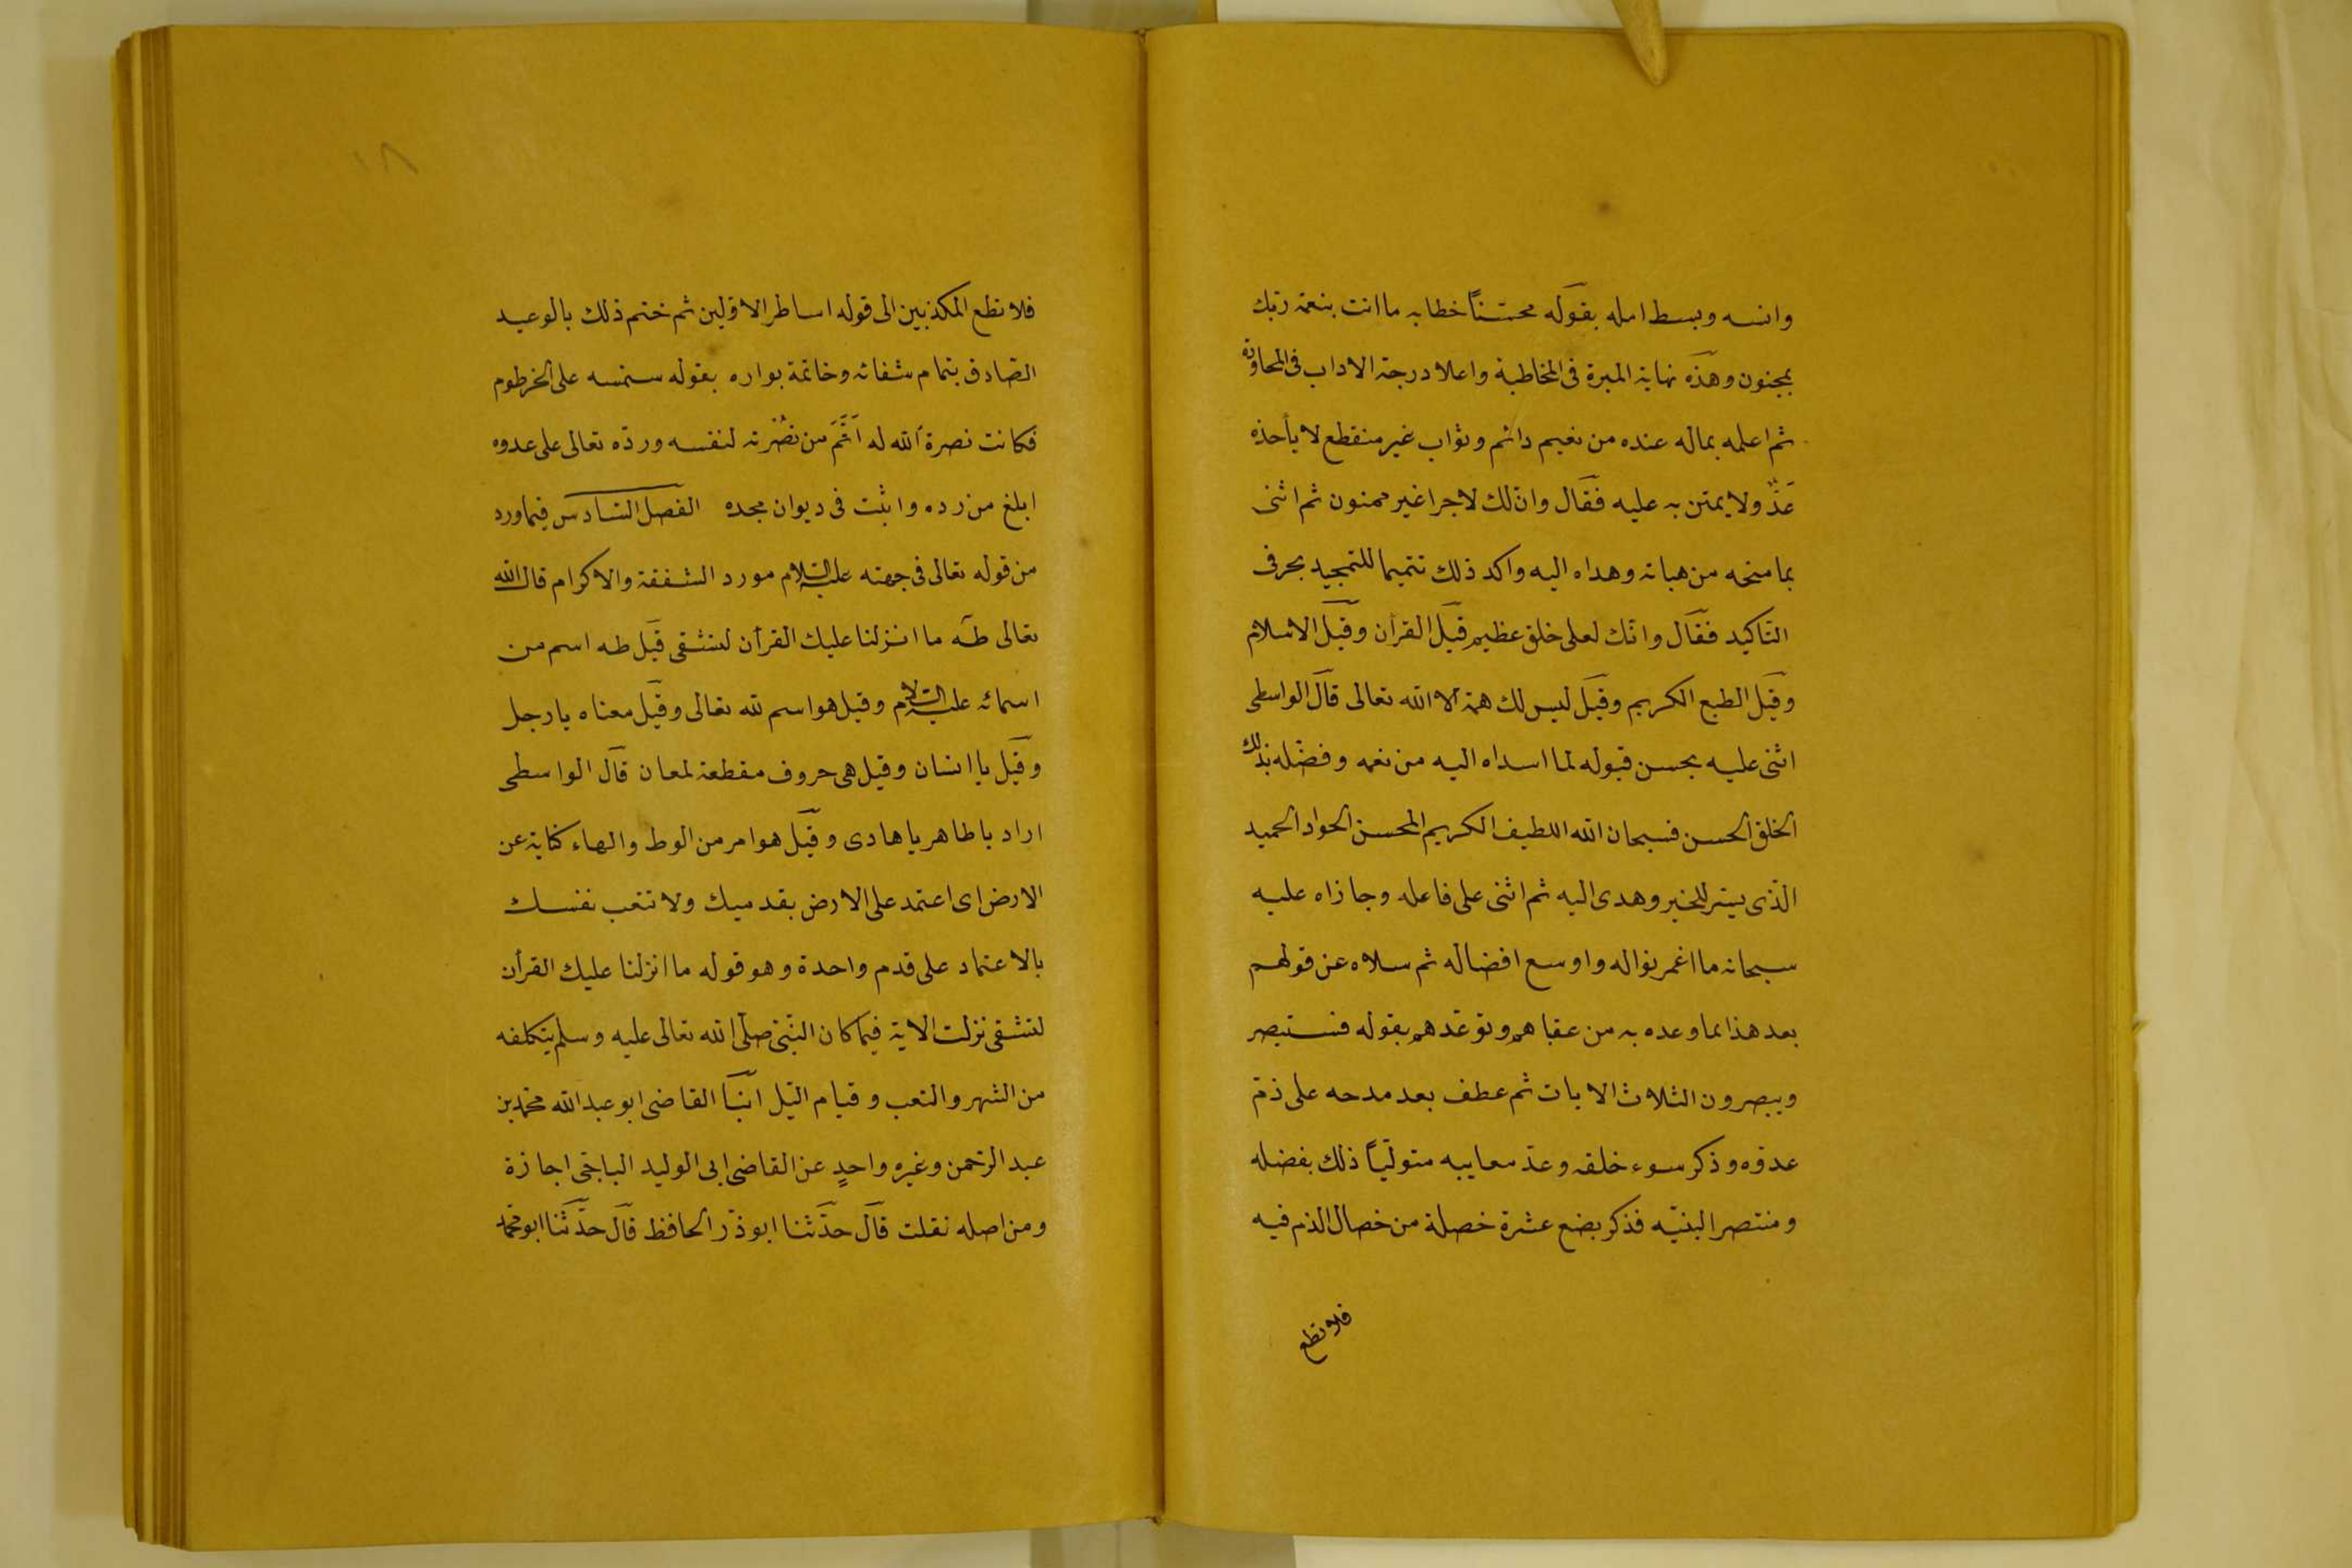 وانسه وبسط امله بقوله محسّنًا خطابه ما انت بنعمة ربّك
بمجنون وهذه نهاية المبرة فى المخاطبة واعلا درجة الاداب فى المحاورة
ثم اعلمه بماله عنده من نعيم دائم وثواب غير منقطع لا يأخذه
عَدٌّ ولا يمتن به عليه فقال وانّ لك لاجرا غير ممنون ثم اثنى
بما منحه من هباته وهداه اليه واكد ذلك تتميما للتمجيد بحرفى
التّاكيد فقال وانّك لعلى خلق عظيم قيل القرأن وقيل الاسلام
وقيل الطبع الكريم وقيل ليس لك همة الا الله تعالى قال الواسطى
اثنى عليه بحسن قبوله لما اسداه اليه من نعمه وفضّله بذلك
الخلق الحسن فسبحان الله اللطيف الكريم المحسن الجواد الحميد
الّذى يسّر للخير وهدى اليه ثم اثنى على فاعله وجازاه عليه
سبحانه ما اغمر نواله واوسع افضاله ثم سلاه عن قولهم
بعد هذا بما وعده به من عقباهم وتوعّدهم بقوله فستبصر
ويبصرون الثلاث الايات ثم عطف بعد مدحه على ذمّ
عدوّه وذكر سوء خلقه وعدّ معايبه متولّيًا ذلك بفضله
ومنتصرا لنبيّه فذكر بضع عشرة خصلة من خصال الذم فيه
فلا تطع
١٨
فلا تطع المكذبين الى قوله اساطر الاوّلين ثم ختم ذلك بالوعيد
الصّادق بتمام شقائه وخاتمة بواره بقوله سنسمه على الخرطوم
فكانت نصرة الله له اَتَمَّ من نُصْرته لنفسه وردّه تعالى على عدوه
ابلغ من رده واثبت فى ديوان مجده الفصل السّادس فيما ورد
من قوله تعالى فى جهته عليه السّلام مورد الشفقة والاكرام قال الله
تعالى طه ما انزلنا عليك القرأن لتشقى قيل طه اسم من
اسمائه عليه السّلام وقيل هو اسم لله تعالى وقيل معناه يا رجل
وقيل يا انسان وقيل هى حروف مقطعة لمعان قال الواسطى
اراد يا طاهر يا هادى وقيل هو امر من الوط والهاء كناية عن
الارض اى اعتمد على الارض بقدميك ولا تتعب نفسك
بالاعتماد على قدم واحدة وهو قوله ما انزلنا عليك القرأن
لتشقى نزلت الاية فيما كان النّبىّ صلّى الله تعالى عليه وسلم يتكلفه
من السّهر والتعب وقيام اللّيل انبأ القاضى ابو عبد الله محمّد بن
عبد الرّحمن وغيره واحدٍ عن القاضى ابى الوليد الباجّى اجازة
ومن اصله نقلت قال حدّثنا ابو ذرّ الحافظ قال حدّثنا ابو محمّد